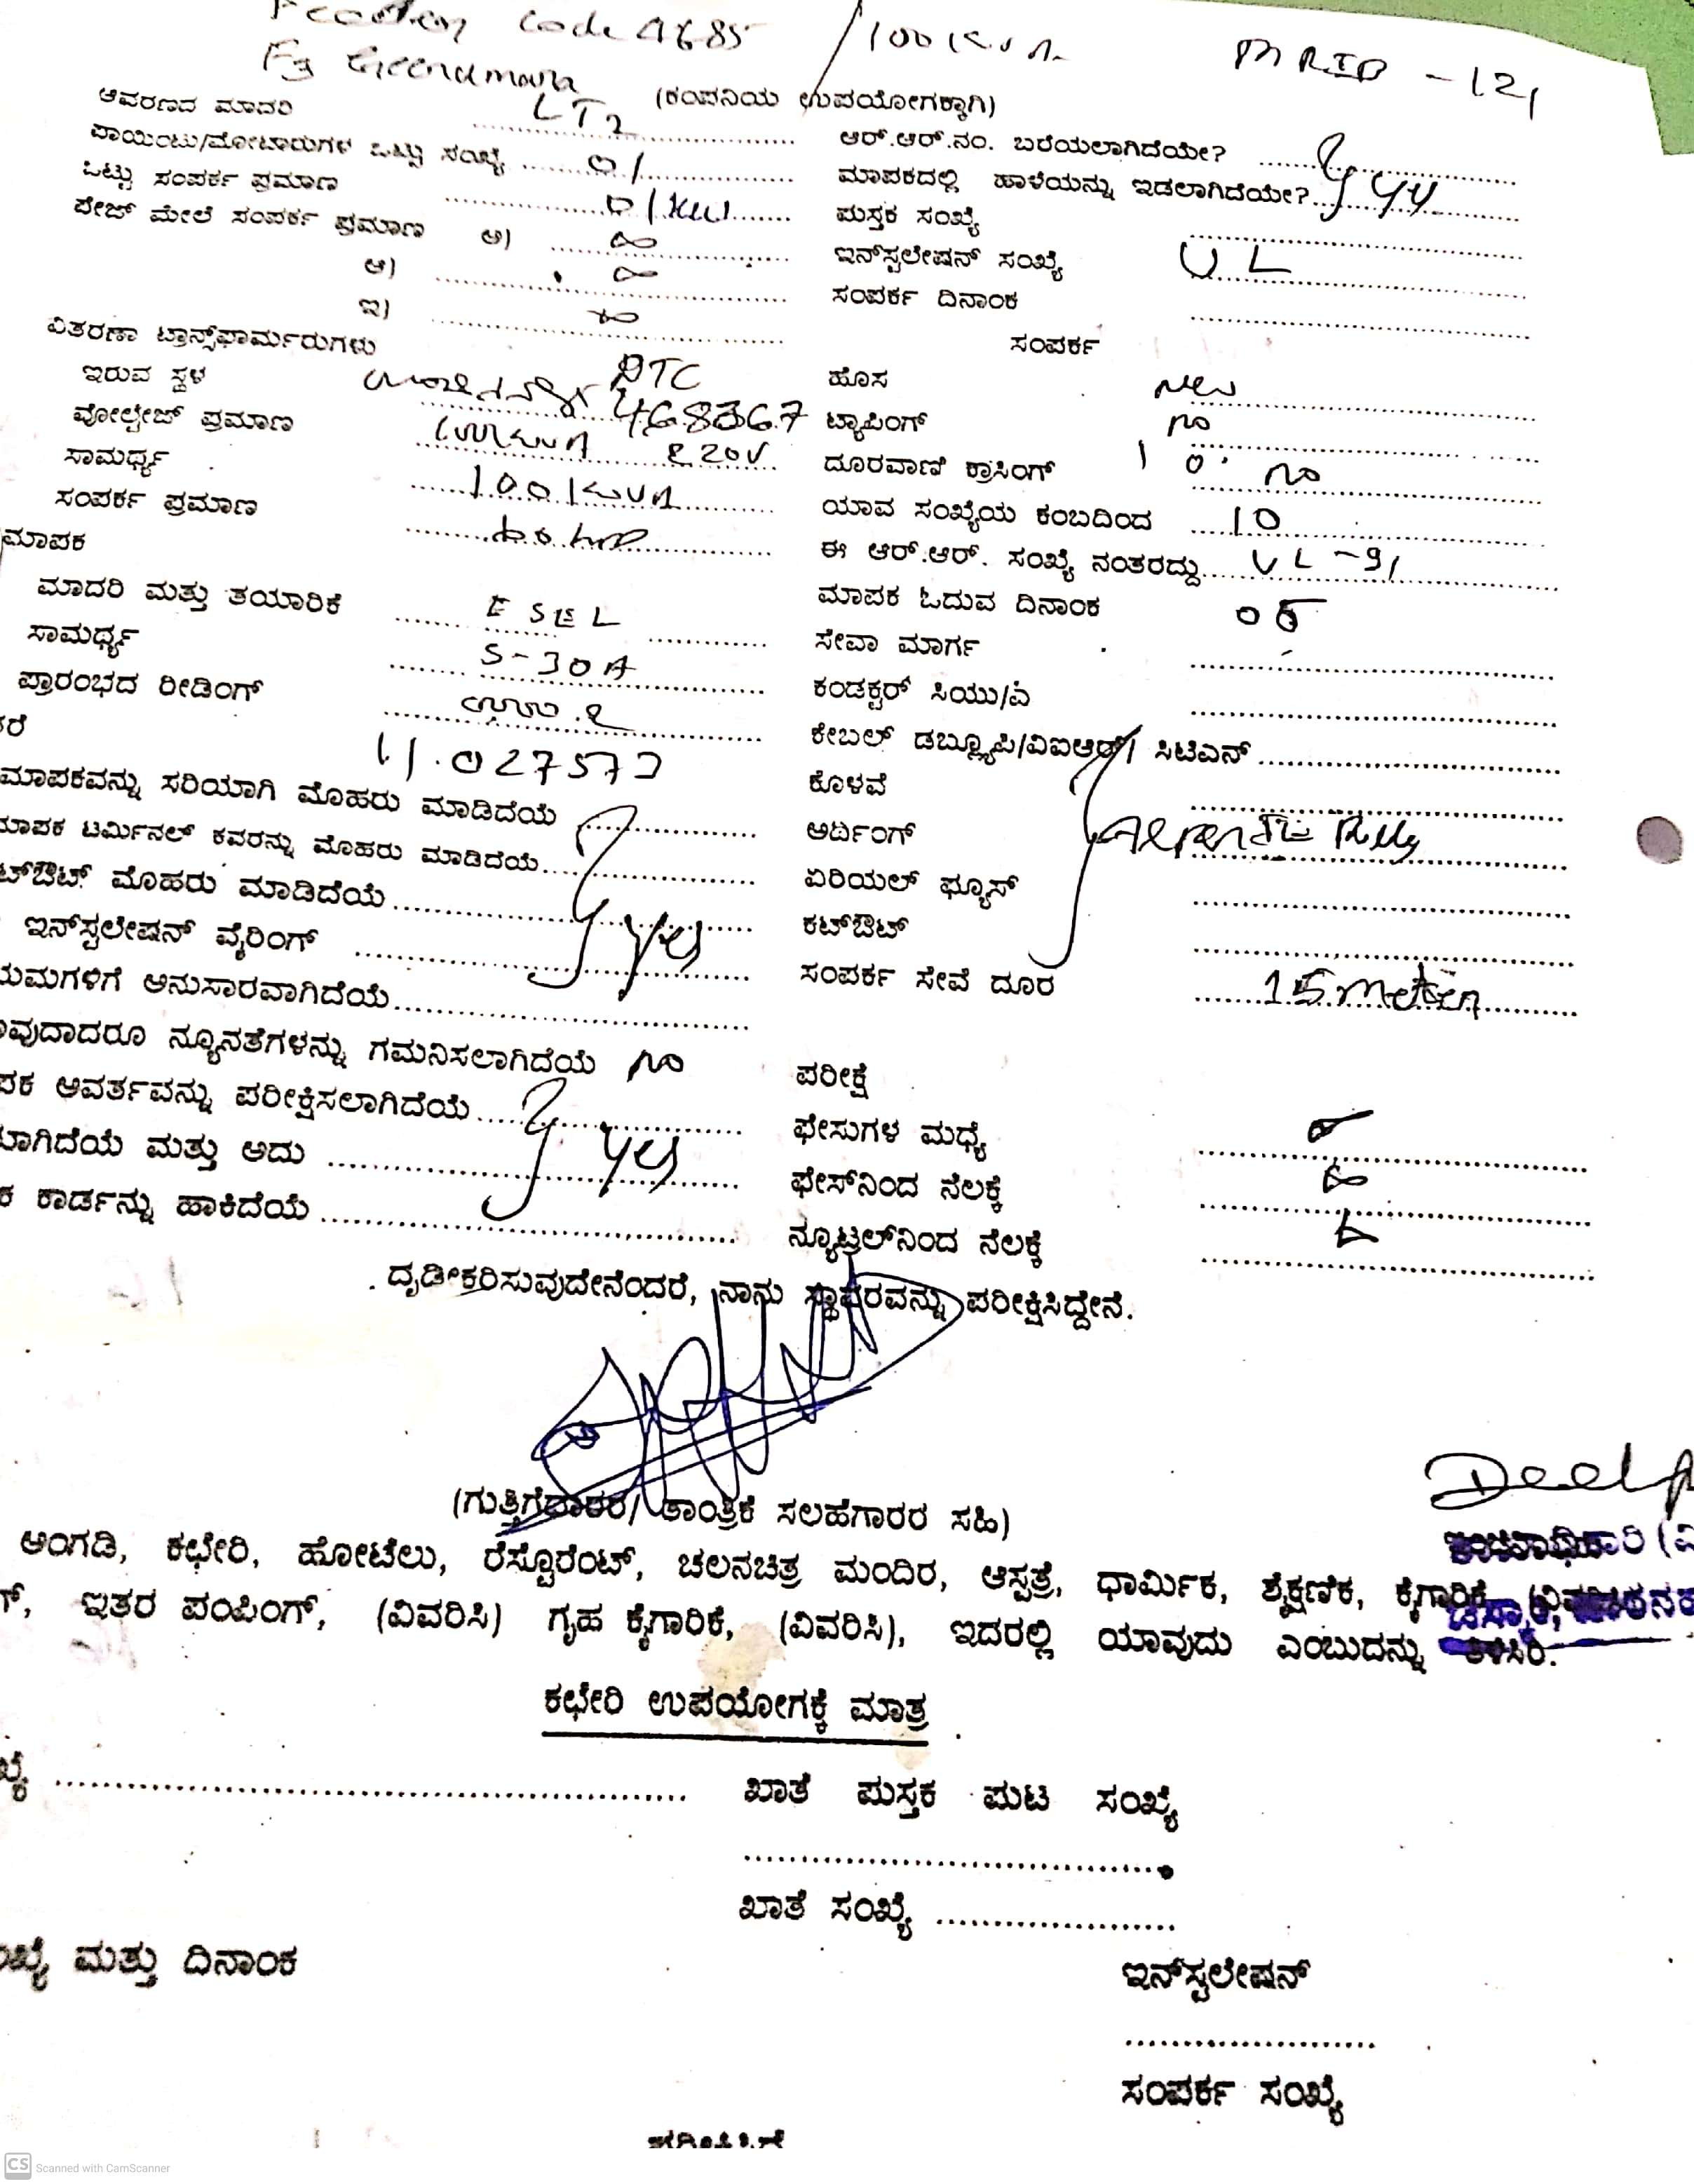 code 4685 /100 KVA MRID - 121
(ಕಂಪನಿಯ ಉಪಯೋಗಕ್ಕಾಗಿ)
ಆವರಣದ ಮಾದರಿ LT2
ಪಾಯಿಂಟು/ಮೋಟಾರುಗಳ ಒಟ್ಟು ಸಂಖ್ಯೆ 01
ಒಟ್ಟು ಸಂಪರ್ಕ ಪ್ರಮಾಣ 01 KW
ಪೇಜ್ ಮೇಲೆ ಸಂಪರ್ಕ ಪ್ರಮಾಣ ಅ)
ಆ)
ಇ)
ವಿತರಣಾ ಟ್ರಾನ್ಸ್‌ಫಾರ್ಮರುಗಳು
ಇರುವ ಸ್ಥಳ DTC 468367
ವೋಲ್ಟೇಜ್ ಪ್ರಮಾಣ 220V
ಸಾಮರ್ಥ್ಯ 100 KVA
ಸಂಪರ್ಕ ಪ್ರಮಾಣ
ಮಾಪಕ
ಮಾದರಿ ಮತ್ತು ತಯಾರಿಕೆ
ಸಾಮರ್ಥ್ಯ 5-30A
ಪ್ರಾರಂಭದ ರೀಡಿಂಗ್
ರೆ 11.027573
ಮಾಪಕವನ್ನು ಸರಿಯಾಗಿ ಮೊಹರು ಮಾಡಿದೆಯೆ
ಮಾಪಕ ಟರ್ಮಿನಲ್ ಕವರನ್ನು ಮೊಹರು ಮಾಡಿದೆಯೆ
ಟ್‌ಔಟ್ ಮೊಹರು ಮಾಡಿದೆಯೆ
ಇನ್‌ಸ್ಟಲೇಷನ್ ವೈರಿಂಗ್ yes
ಯಮಗಳಿಗೆ ಅನುಸಾರವಾಗಿದೆಯೆ
ವುದಾದರೂ ನ್ಯೂನತೆಗಳನ್ನು ಗಮನಿಸಲಾಗಿದೆಯೆ no
ಪಕ ಆವರ್ತವನ್ನು ಪರೀಕ್ಷಿಸಲಾಗಿದೆಯೆ
ಲಾಗಿದೆಯೆ ಮತ್ತು ಅದು yes
ಕ ಕಾರ್ಡನ್ನು ಹಾಕಿದೆಯೆ
ಆರ್.ಆರ್.ನಂ. ಬರೆಯಲಾಗಿದೆಯೇ?
ಮಾಪಕದಲ್ಲಿ ಹಾಳೆಯನ್ನು ಇಡಲಾಗಿದೆಯೇ? yes
ಪುಸ್ತಕ ಸಂಖ್ಯೆ
ಇನ್‌ಸ್ಟಲೇಷನ್ ಸಂಖ್ಯೆ UL
ಸಂಪರ್ಕ ದಿನಾಂಕ
ಸಂಪರ್ಕ
ಹೊಸ new
ಟ್ಯಾಪಿಂಗ್ no
ದೂರವಾಣಿ ಕ್ರಾಸಿಂಗ್ no
ಯಾವ ಸಂಖ್ಯೆಯ ಕಂಬದಿಂದ 10
ಈ ಆರ್.ಆರ್. ಸಂಖ್ಯೆ ನಂತರದ್ದು UL-91
ಮಾಪಕ ಓದುವ ದಿನಾಂಕ 05
ಸೇವಾ ಮಾರ್ಗ
ಕಂಡಕ್ಟರ್ ಸಿಯು/ಎ
ಕೇಬಲ್ ಡಬ್ಲ್ಯೂಪಿ/ವಿಐಆರ್/ ಸಿಟಿಎನ್
ಕೊಳವೆ
ಅರ್ಥಿಂಗ್
ಏರಿಯಲ್ ಫ್ಯೂಸ್
ಕಟ್‌ಔಟ್
ಸಂಪರ್ಕ ಸೇವೆ ದೂರ 15 metter
ಪರೀಕ್ಷೆ
ಫೇಸುಗಳ ಮಧ್ಯೆ
ಫೇಸ್‌ನಿಂದ ನೆಲಕ್ಕೆ
ನ್ಯೂಟ್ರಲ್‌ನಿಂದ ನೆಲಕ್ಕೆ
ದೃಡೀಕರಿಸುವುದೇನೆಂದರೆ, ನಾನು ಸ್ಥಾವರವನ್ನು ಪರೀಕ್ಷಿಸಿದ್ದೇನೆ.
(ಗುತ್ತಿಗೆದಾರರ/ ತಾಂತ್ರಿಕ ಸಲಹೆಗಾರರ ಸಹಿ)
ಅಂಗಡಿ, ಕಛೇರಿ, ಹೋಟೆಲು, ರೆಸ್ಟೊರೆಂಟ್, ಚಲನಚಿತ್ರ ಮಂದಿರ, ಆಸ್ಪತ್ರೆ, ಧಾರ್ಮಿಕ, ಶೈಕ್ಷಣಿಕ, ಕೈಗಾರಿಕೆ
ಗ್, ಇತರ ಪಂಪಿಂಗ್, (ವಿವರಿಸಿ) ಗೃಹ ಕೈಗಾರಿಕೆ, (ವಿವರಿಸಿ), ಇದರಲ್ಲಿ ಯಾವುದು ಎಂಬುದನ್ನು ತಿಳಿಸಿರಿ.
ಕಛೇರಿ ಉಪಯೋಗಕ್ಕೆ ಮಾತ್ರ
ಖ್ಯೆ ಖಾತೆ ಪುಸ್ತಕ ಪುಟ ಸಂಖ್ಯೆ
ಖಾತೆ ಸಂಖ್ಯೆ
ಂಖ್ಯೆ ಮತ್ತು ದಿನಾಂಕ
ಇನ್‌ಸ್ಟಲೇಷನ್
ಸಂಪರ್ಕ ಸಂಖ್ಯೆ
CS Scanned with CamScanner